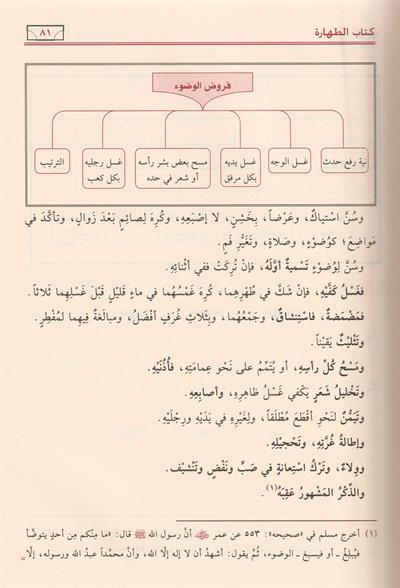 كتاب الطهارة
٨١
فروض الوضوء
نية رفع حدث
غسل الوجه
غسل يديه
بكل مرفق
مسح بعض بشر رأسه
أو شعر في حده
غسل رجليه
بكل كعب
الترتيب
وسُنَّ اسْتياكٌ، وعَرْضاً، بِخَشِنٍ، لا إصْبَعِهِ، وكُرِهَ لِصائِمٍ بَعْدَ زَوالٍ، وتأكَّدَ في
مَواضِعَ؛ كوُضُوءٍ، وصَلاةٍ، وتَغَيُّرِ فَمٍ.
وسُنَّ لِوُضُوءٍ تَسْمِيةٌ أوَّلَهُ، فإنْ تُرِكَتْ ففي أثْنائِهِ.
فغَسْلُ كَفَّيْهِ، فإنْ شَكَّ في طُهْرِهِما، كُرِهَ غَمْسُهُما في ماءٍ قَليْلٍ قَبْلَ غَسْلِهِما ثَلاثاً.
فمَضْمَضةٌ، فاسْتِنشاقٌ، وجَمْعُهُما، وبِثَلاثِ غُرَفٍ أفْضَلُ، ومبالَغةٌ فِيهِما لمُفْطِرٍ.
وتَثْلِيْثٌ يَقيْناً.
ومَسْحُ كُلِّ رأسِهِ، أو يُتَمِّمُ على نَحْوِ عِمامَتِهِ، فأُذُنَيْهِ.
وتَخْليلُ شَعَرٍ يَكْفي غَسْلُ ظاهِرِهِ، وأصابِعِهِ.
وتَيَمُّنٌ لنَحْوِ أقْطَعَ مُطْلَقاً، ولِغَيْرِهِ في يَدَيْهِ ورِجْلَيْهِ.
وإطالةُ غُرَّتِهِ، وتَحْجيْلِهِ.
ووِلاءٌ، وتَرْكُ اسْتِعانةٍ في صَبٍّ ونَفْضٍ وتَنْشيْف.
والذِّكْرُ المَشْهورُ عَقِبَهُ(١).
(١) أخرج مسلم في «صحيحه»: ٥٥٣ عن عمر رضي الله عنه أنَّ رسول الله ﷺ قال: «ما مِنْكم مِن أحدٍ يتوضَّأ
فيُبْلِغُ ـ أو فيسبغ ـ الوضوء، ثُمَّ يقول: أشهدُ أن لا إله إلَّا الله، وأنَّ محمَّداً عبدُ الله ورسوله، إلَّا